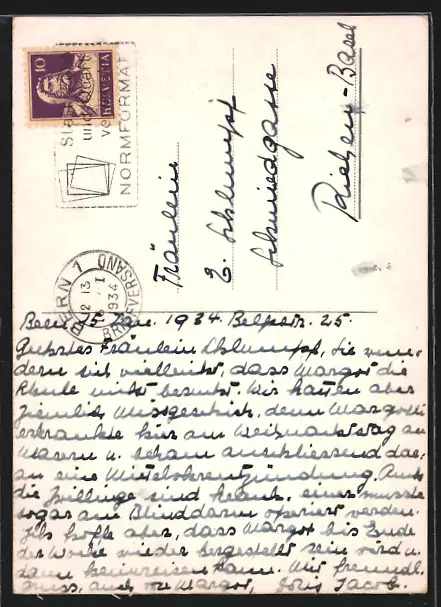 10
HELVETIA
NORMFORMAT
BERN 1
BRIEFVERSAND
12 13
I
1934
Fräulein
E. Schlumpf
Schmiedgasse
Riehen-Basel
Bern 15. Jan. 1934. Belpstr. 25.
Geehrtes Fräulein Schlumpf, Sie wun-
dern sich vielleicht, dass Margot die
Schule nicht besucht. Wir hatten aber
ziemlich Missgeschick, denn Margotli
erkrankte hier am Weihnachtstag an
Masern u. bekam anschliessend dar-
an eine Mittelohrentzündung. Auch
die Zwillinge sind krank, einer musste
sogar am Blinddarm operiert werden.
Ich hoffe aber, dass Margot bis Ende
der Woche wieder hergestellt sein wird u.
dann heimreisen kann. Mit freundl.
Gruss, auch von Margot, Jacob.